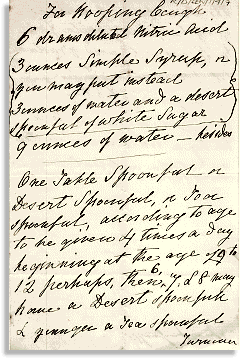 For Hooping Cough
6 drams diluted Nitric Acid
3 ounces Simple Syrup, or
you may put instead
3 ounces of water and a desert
spoonful of white Sugar
9 ounces of water besides
One Table Spoonful or
Desert Spoonful, or Tea
spoonful, according to age
to be given 4 times a day
beginning at the age of 9 to
12 perhaps, then 6, 7, & 8 may
have a Desert spoonful
& younger a Tea spoonful
Turnover